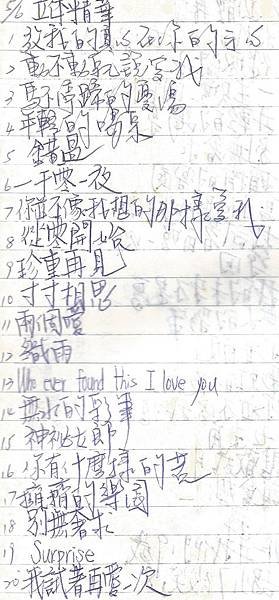 56 立年精華
1 放我的真心在你的手心
2 動不動就說愛我
3 馬不停蹄的憂傷
4 年輕的喝采
5 錯過
6 一千零一夜
7 你並不像我想的那樣愛我
8 從零開始
9 珍重再見
10 寸寸相思
11 兩個愛
12 織雨
13 Who ever found this I love you
14 無水的彩筆
15 神秘女郎
16 你有什麼樣的苦
17 擁擠的樂園
18 別無奢求
19 Surprise
20 我試著再愛一次